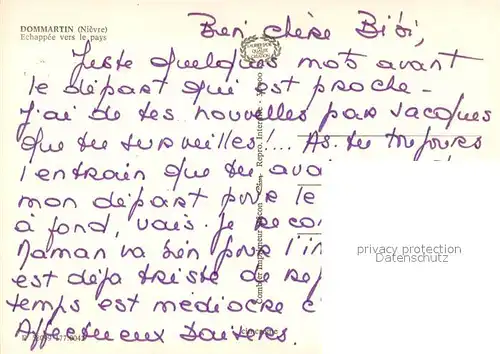 DOMMARTIN (Nièvre)
Echappée vers le pays
Bien chère Bibi,
Juste quelques mots avant
le départ qui est proche -
J'ai de tes nouvelles par Jacques
que tu surveilles!... As-tu toujours
l'entrain que tu ava
mon départ pour le
à fond, vais-je
Maman va bien pour l'in
est déjà triste de
temps est médiocre
Affectueux
privacy protection
Datenschutz
Combier Imprimeur Mâcon
Repro. Interdite